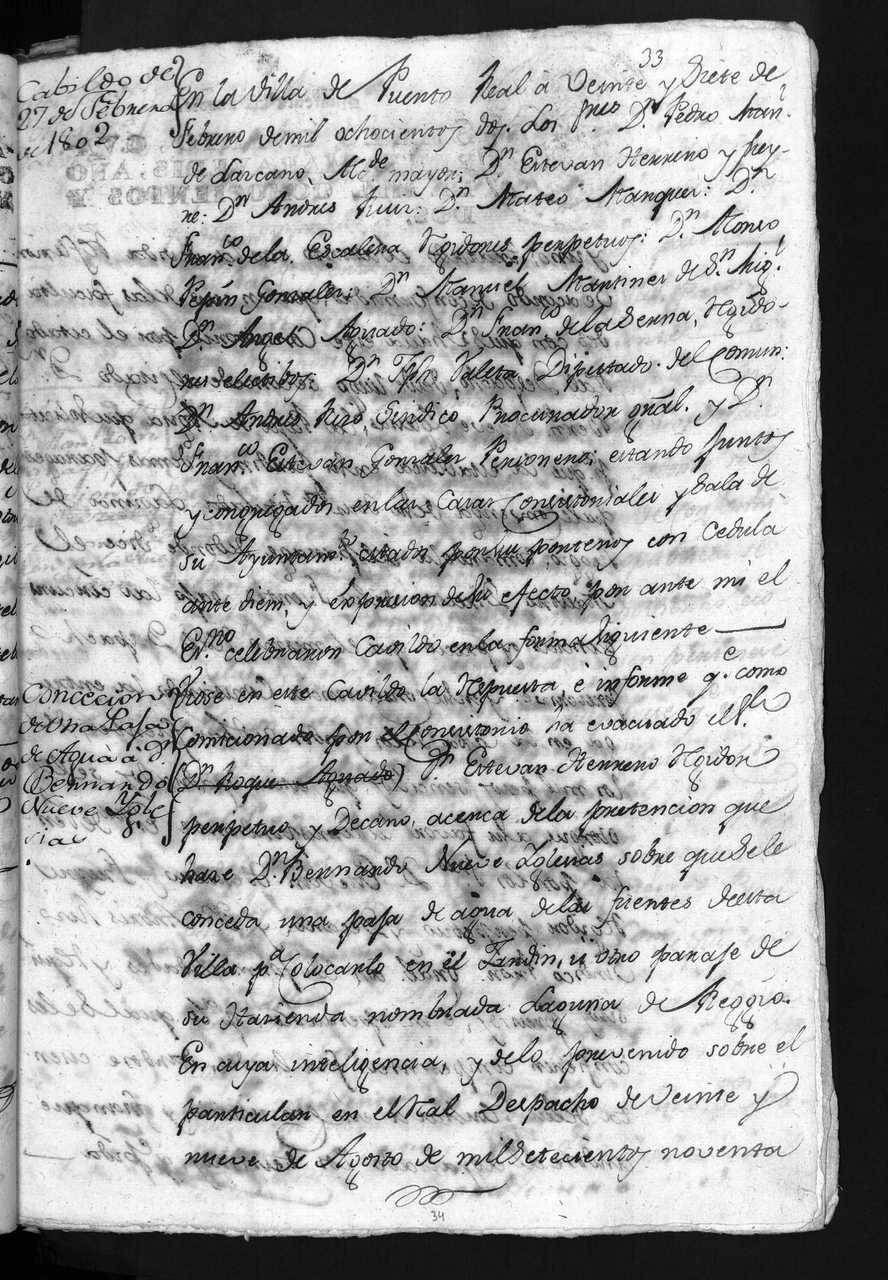 33
Cabildo de
27 de Febrero
de 1802
En la Villa de Puerto Real a Veinte y Siete de
Febrero de mil ochocientos dos. Los Sres. Dn. Pedro
de Larcano, Alc.de mayor; Dn. Estevan Herrero y Rey-
na: Dn Andrés Dn. Mateo Manquer: Dn
Fran.co de la Escalera Rejidores perpetuos: Dn. Alonso
Gonzalez, Dn Manuel Martinez de Sn. Mig.l
Dn. Angel Aguado: Dn Fran.co de la Serna, Rejido-
res electibos: Dn Jph. Valeta, Diputado del Comun:
Dn Andrés Rizo, Sindico Procurador gñal. y Dn
Fran.co Estevan Gonzalez Personero; estando juntos
y congregados en las Casas Consistoriales y Sala de
su Ayuntam.to citados por sus porteros con cedula
ante diem, y expresion de su efecto, por ante mi el
Es.no celebraron Cavildo en la forma siguiente
Concecion
de una Paja
de Agua à Dn
Bernardo
Nueve Ygle
sias
Viose en este Cavildo la Repuesta è informe q.e como
comicionado por el Consistorio ha evacuado el Sr.
(Dn Roque Aguado) Dn Estevan Herrero Rejidor
perpetuo y Decano, acerca de la pretencion que
haze Dn. Bernardo Nueve Yglesias sobre que se le
conceda una paja de agua de las fuentes de esta
Villa p.a Colocarlo en el Jardin, ù otro paraje de
su Hazienda nombrada Laguna de Reggio.
En cuya inteligencia, y de lo prevenido sobre el
particular en el Real Despacho de Veinte y
nueve de Agosto de mil Setecientos noventa
34